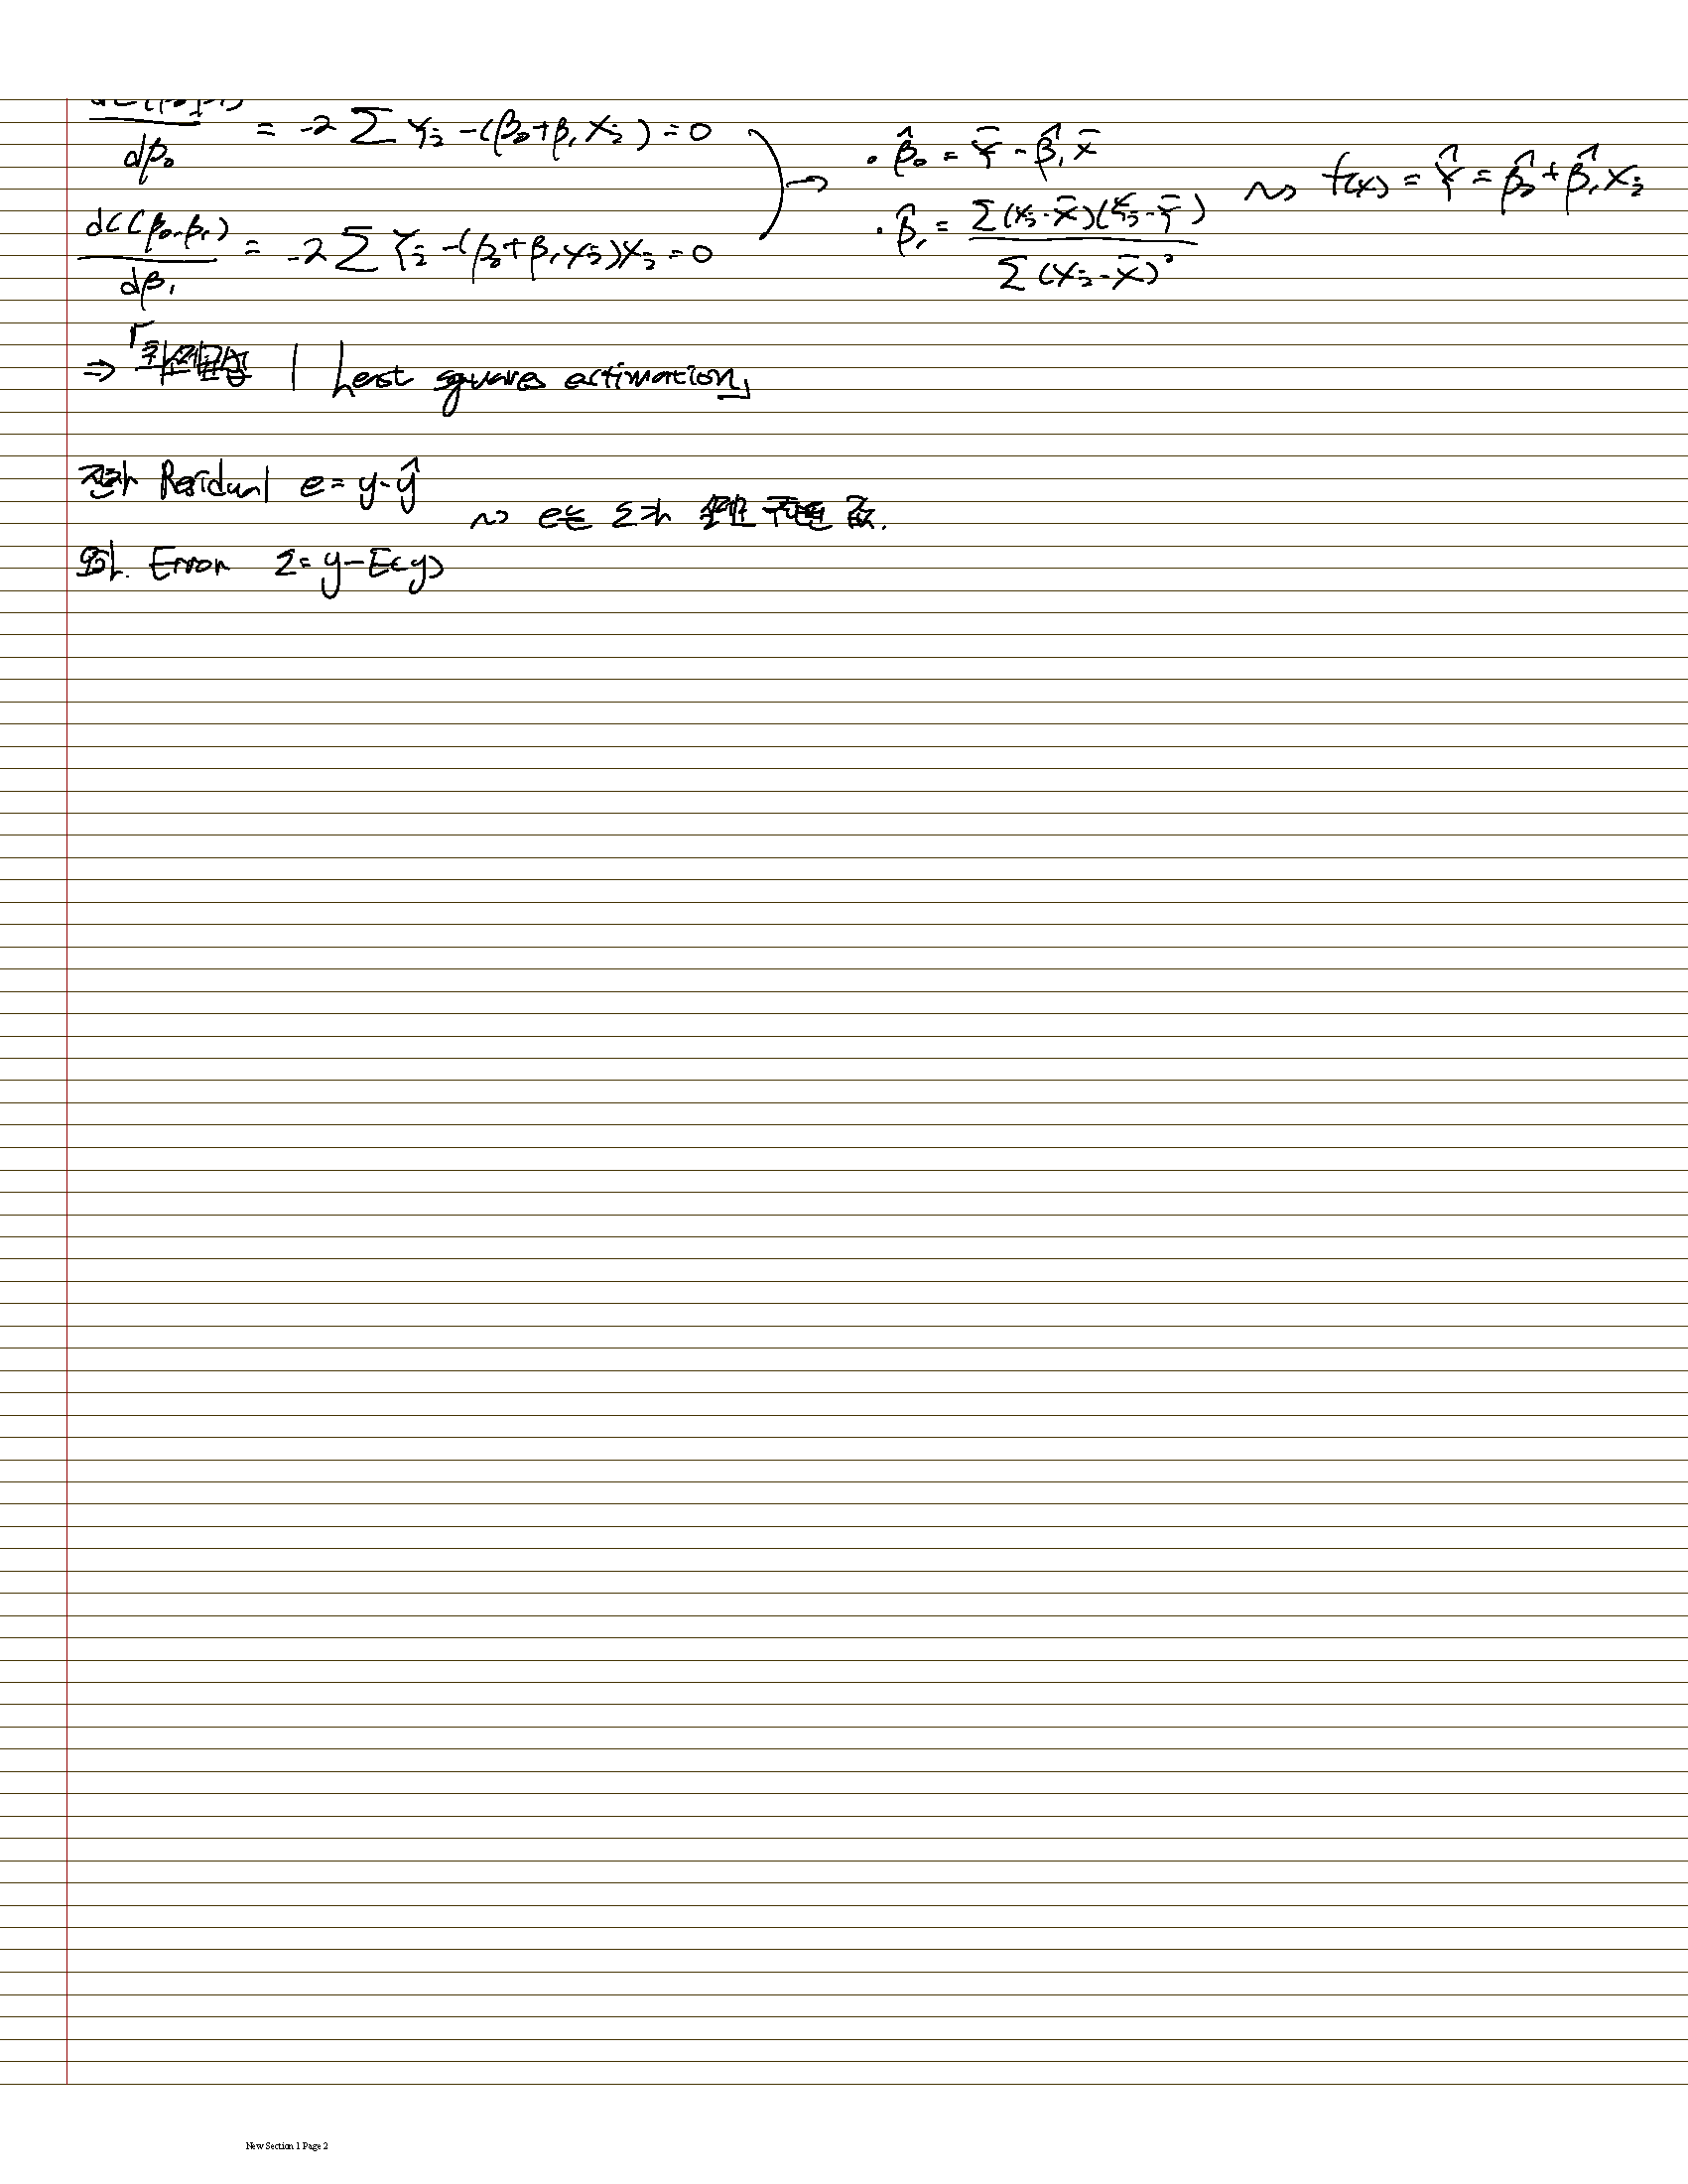 dC(β₀,β₁)/dβ₀ = -2 Σ Yᵢ - (β₀+β₁Xᵢ) = 0
dC(β₀,β₁)/dβ₁ = -2 Σ Yᵢ - (β₀+β₁Xᵢ)Xᵢ = 0
→ · β̂₀ = Ȳ - β̂₁X̄
· β̂₁ = Σ(Xᵢ-X̄)(Yᵢ-Ȳ) / Σ(Xᵢ-X̄)²
~> f(x) = Ŷ = β̂₀ + β̂₁Xᵢ
⇒ 「최소제곱법 | Least squares estimation」
잔차 Residual e = y - ŷ
~> e는 Σ가 실제 구현된 값.
오차. Error Σ = y - E(y)
New Section 1 Page 2